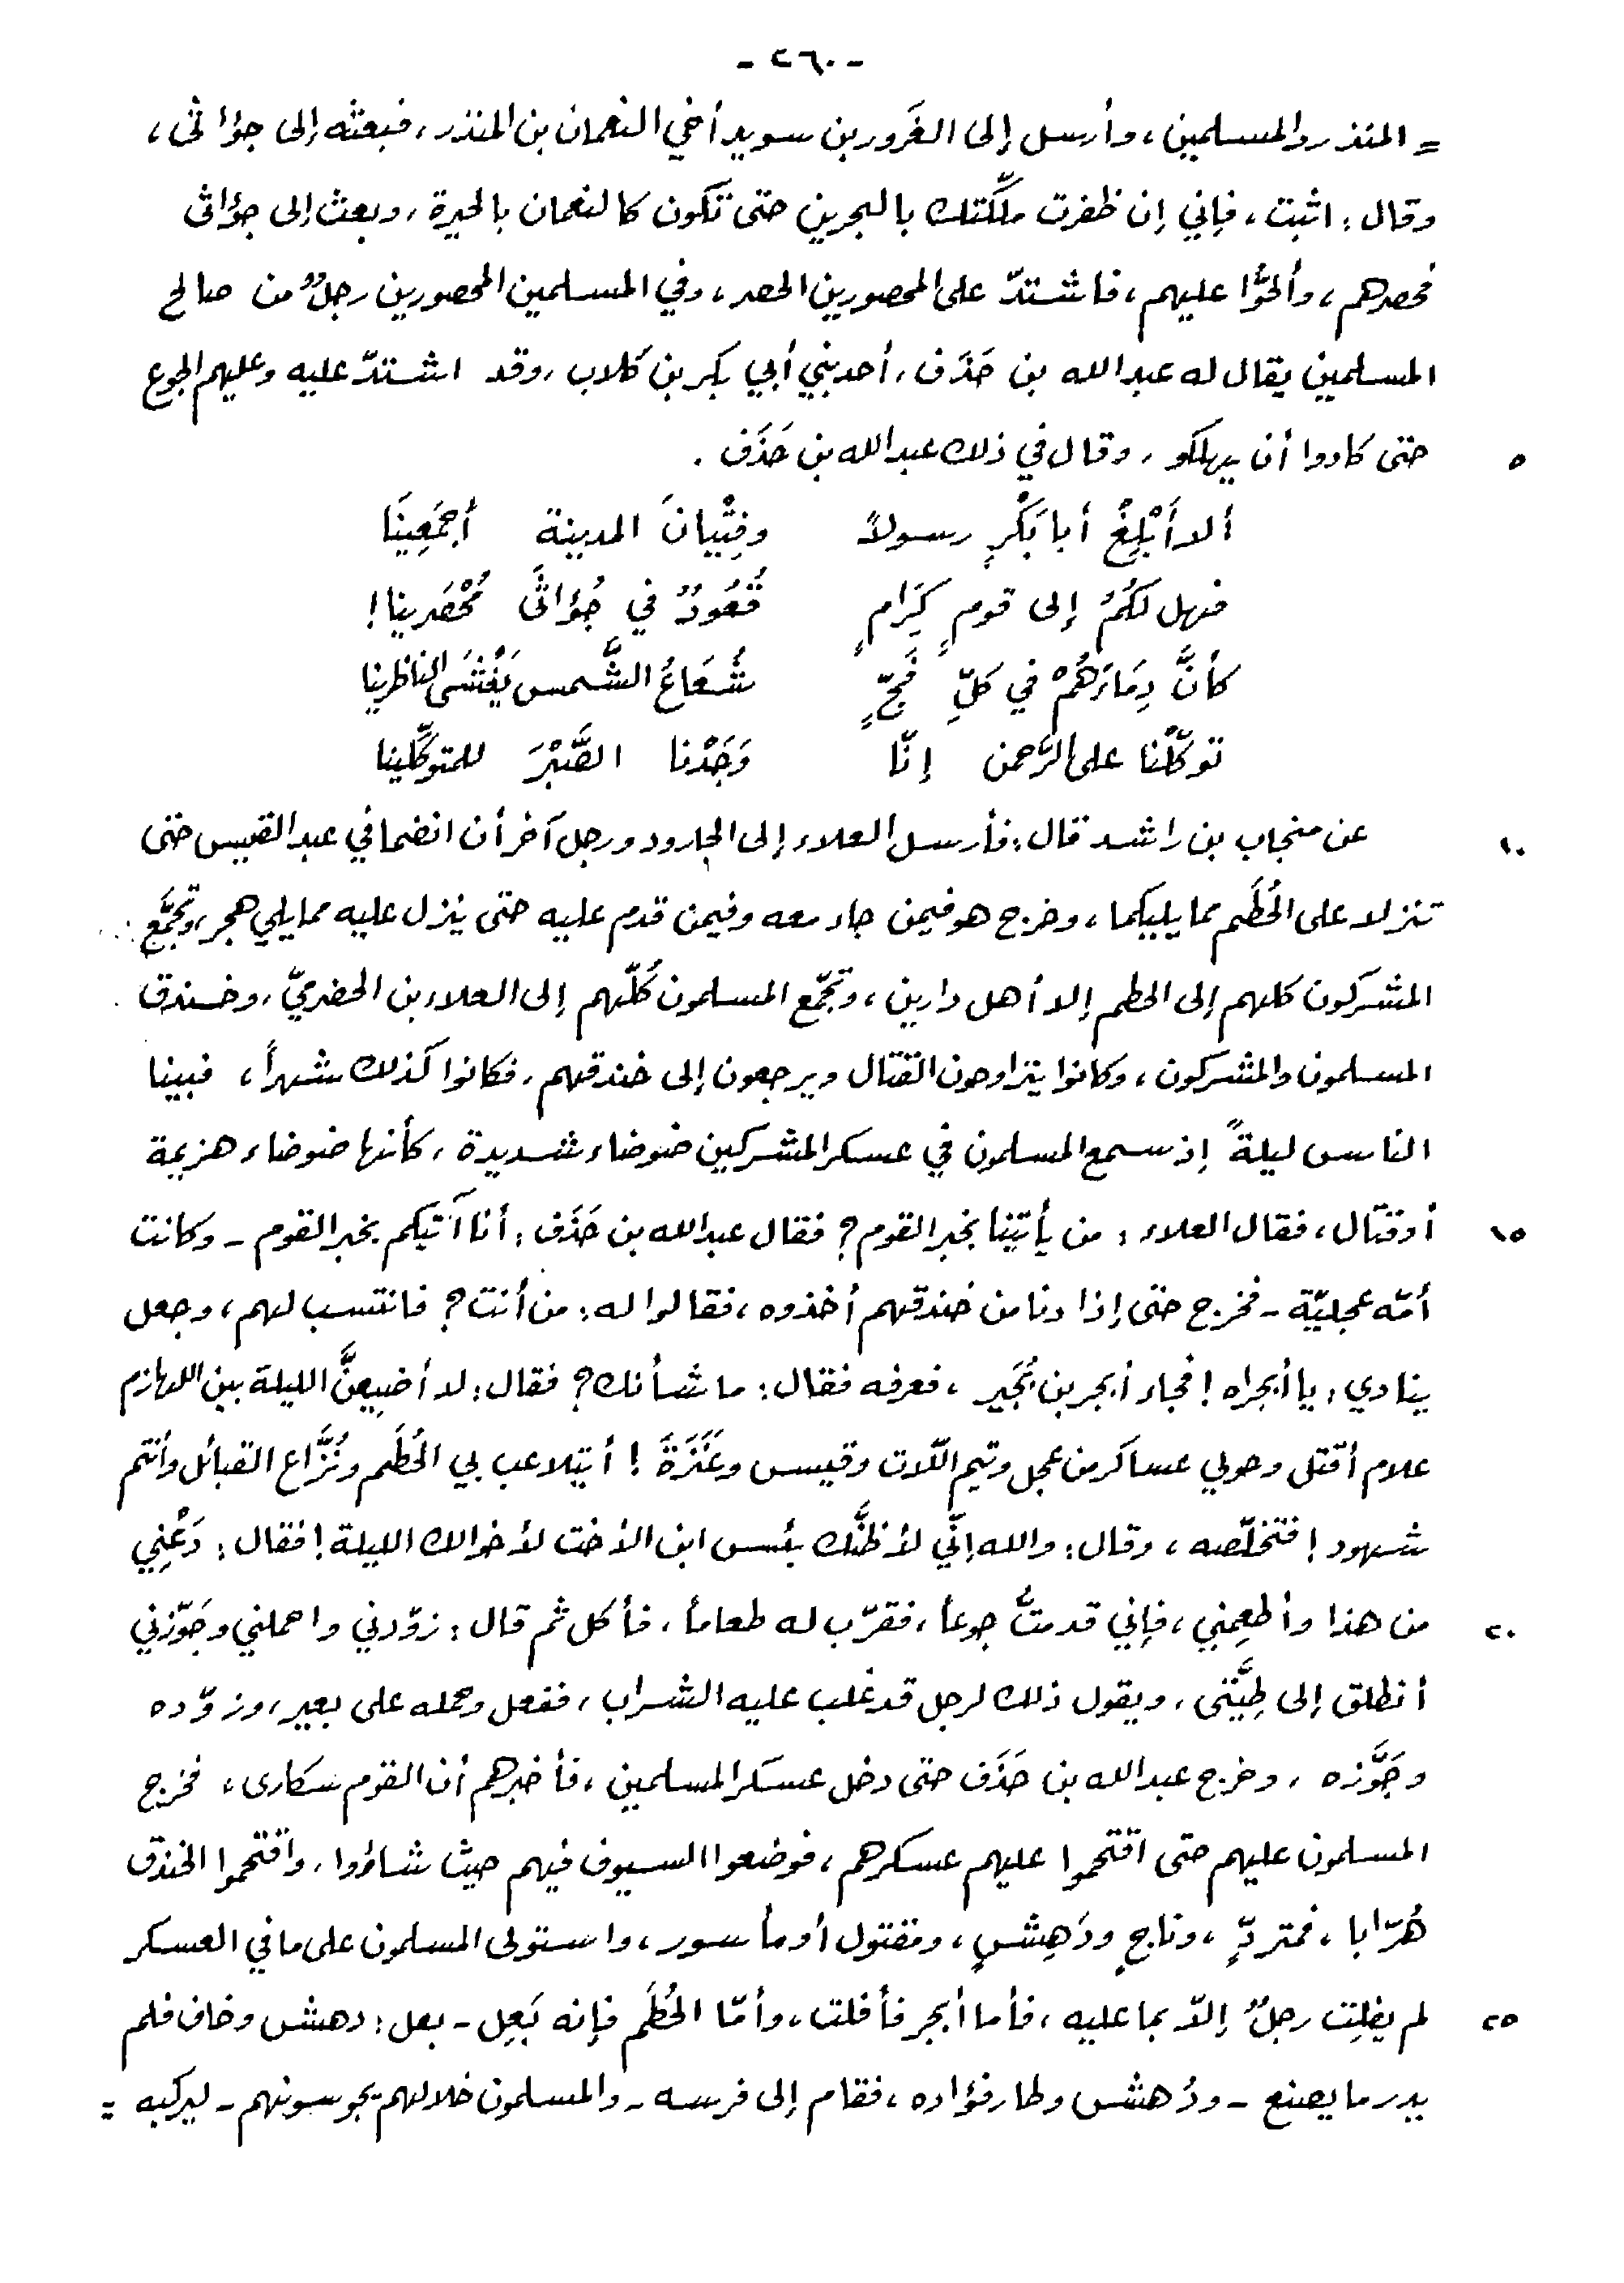 - ٢٦٠ -
= المنذر والمسلمين، وأرسل إلى الغَرور بن سويد أخي النعمان بن المنذر، فبعثه إلى جؤاثى،
وقال: اثبت، فإني إن ظفرت ملّكتك بالبحرين حتى تكون كالنعمان بالحيرة، وبعث إلى جؤاثى
فحصرهم، وألحُّوا عليهم، فاشتدّ على المحصورين الحصر، وفي المسلمين المحصورين رجلٌ من صالح
المسلمين يقال له عبدالله بن حَذَف، أحد بني أبي بكر بن كلاب، وقد اشتدّ عليه وعليهم الجوع
٥ حتى كادوا أن يهلكو، وقال في ذلك عبدالله بن حَذَف.
ألا أَبْلِغْ أبا بَكْرٍ رسولاً وفِتْيانَ المدينة أجمَعِينَا
فهل لكُمُ إلى قومٍ كِرَامٍ قُعُودٌ في جُؤاثَى مُحْصَرينا!
كأنَّ دِمَاءَهُمْ في كلِّ فَجٍّ شُعَاعُ الشَّمس يَغْشَى الناظرينا
توكّلْنا على الرَّحمن إنّا وَجَدْنا الصَّبْرَ للمتوكِّلينا
١٠ عن منجاب بن راشد قال: فأرسل العلاء إلى الجارود ورجل آخر أن انضما في عبدالقيس حتى
تنزلا على الحُطَم مما يليكما، وخرج هو فيمن جاء معه وفيمن قدم عليه حتى ينزل عليه مما يلي هجر، وتجمَّع
المشركون كلهم إلى الحطم إلا أهل دارين، وتجمّع المسلمون كُلّهم إلى العلاء بن الحضرميّ، وخندق
المسلمون والمشركون، وكانوا يتراوحون القتال ويرجعون إلى خندقهم، فكانوا كذلك شهراً، فبينا
الناس ليلةً إذ سمع المسلمون في عسكر المشركين ضوضاء شديدة، كأنها ضوضاء هزيمة
١٥ أو قتال، فقال العلاء: من يأتينا بخبر القوم؟ فقال عبدالله بن حَذَف: أنا آتيكم بخبر القوم - وكانت
أمّه عجليّة - فخرج حتى إذا دنا من خندقهم أخذوه، فقالوا له: من أنت؟ فانتسب لهم، وجعل
ينادي: يا أبجراه! فجاء أبجر بن بُجَير، فعرفه فقال: ما شأنك؟ فقال: لا أضيعنَّ الليلة بين اللهازم
علام أقتل وحولي عساكر من عجل وتيم اللّات وقيس وعَنَزَةَ! أيتلاعب بي الحُطَم ونُزَّاع القبائل وأنتم
شهود! فتخلّصه، وقال: والله إنّي لأظنَّك بئس ابن الأخت لأخوالك الليلة! فقال: دَعْنِي
٢٠ من هذا وأطعِمني، فإني قد متُّ جوعاً، فقرّب له طعاماً، فأكل ثم قال: زوّدني واحملني وجَوّزني
أنطلق إلى طِيَّتى، ويقول ذلك لرجل قد غلب عليه الشراب، ففعل وحمله على بعير، وزوّده
وجَوَّزه، وخرج عبدالله بن حَذَف حتى دخل عسكر المسلمين، فأخبرهم أن القوم سكارى، فخرج
المسلمون عليهم حتى اقتحموا عليهم عسكرهم، فوضعوا السيوف فيهم حيث شاؤوا، واقتحموا الخندق
هُرّابا، فمتردٍّ، وناجٍ ودَهِشٍ، ومقتول أو مأسور، واستولى المسلمون على ما في العسكر
٢٥ لم يفلِت رجلٌ إلّا بما عليه، فأما أبجر فأفلت، وأمّا الحُطَم فإنه بَعِل - بعل: دهش وخاف فلم
يدر ما يصنع - ودُهش وطار فؤاده، فقام إلى فرسه - والمسلمون خلالهم يجوسونهم - ليركبه =